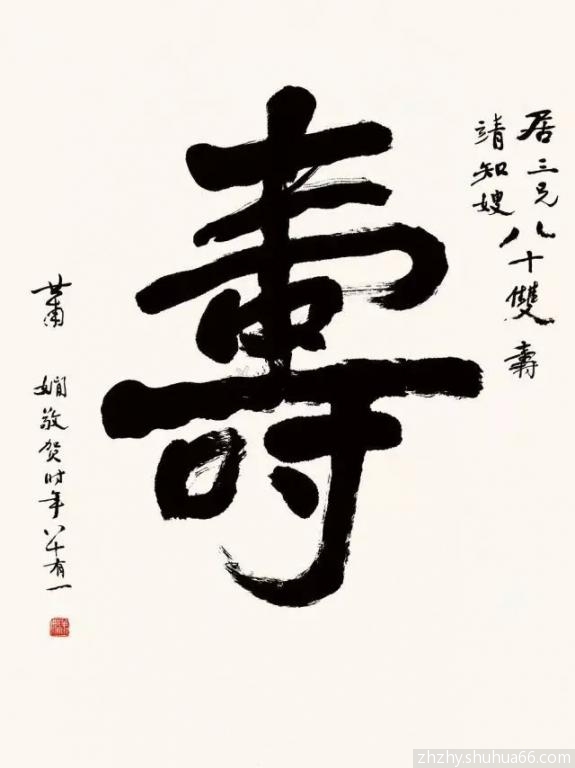 居三兄
靖知嫂
八十雙壽
壽
蕭嫻敬贺时年八十有一
zhzhy.shuhua66.com